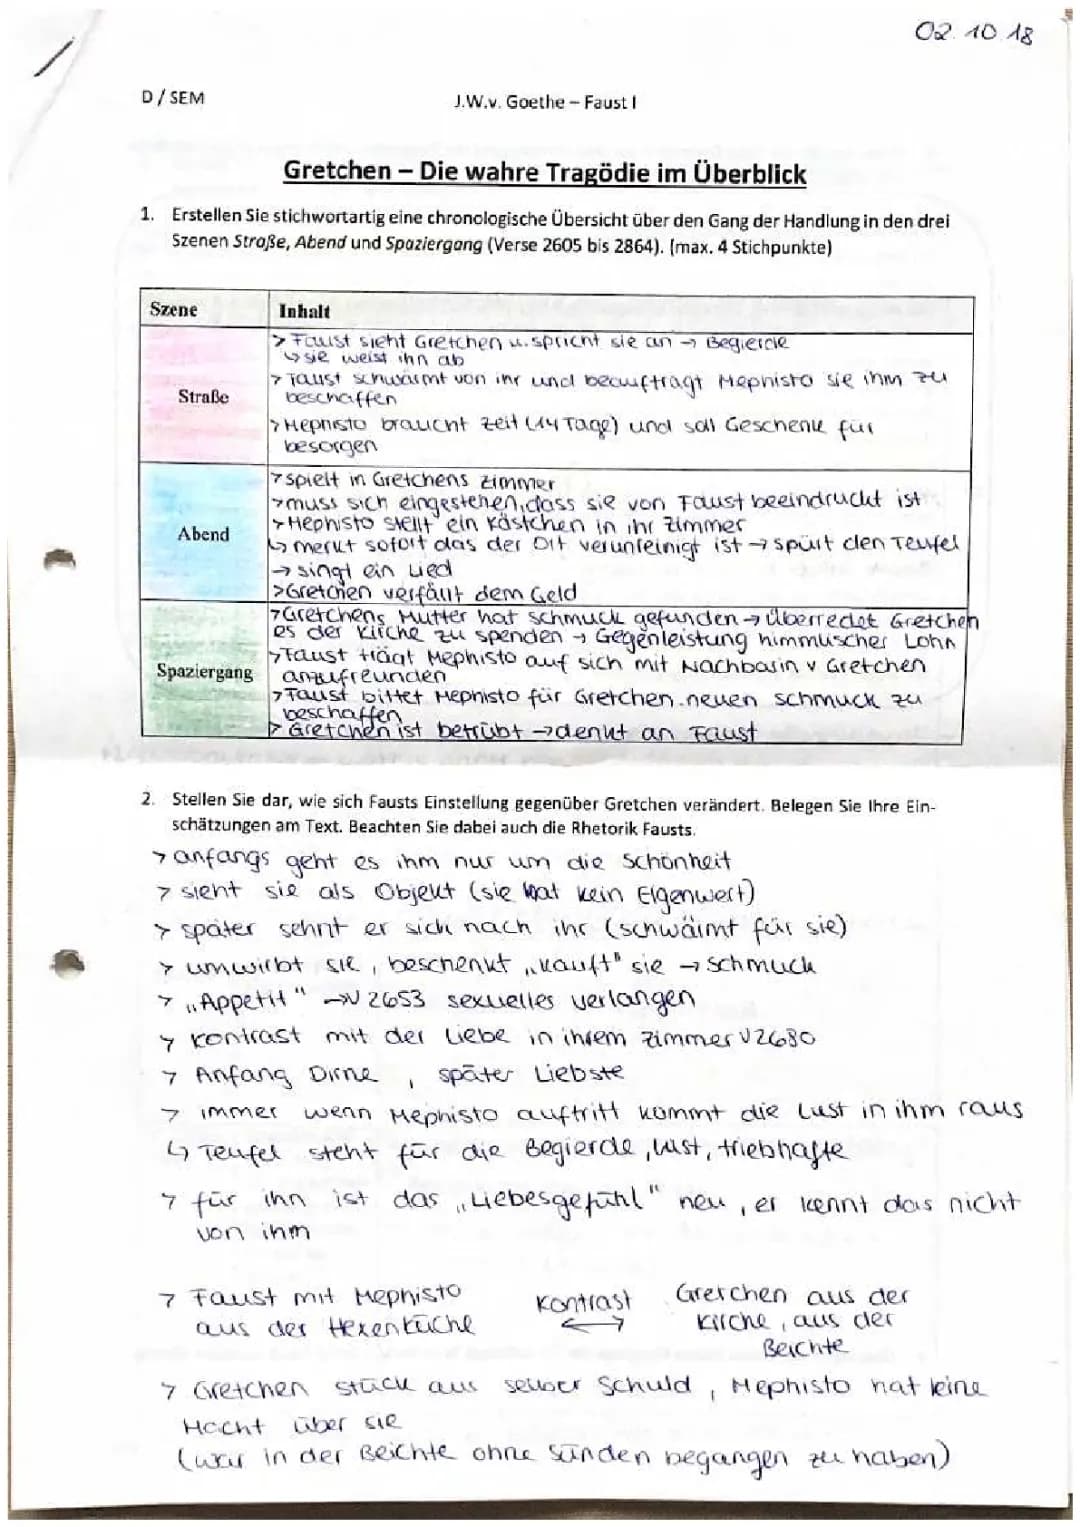 02.10.18
D / SEM
J.W.v. Goethe – Faust I
Gretchen – Die wahre Tragödie im Überblick
1. Erstellen Sie stichwortartig eine chronologische Übersicht über den Gang der Handlung in den drei
Szenen Straße, Abend und Spaziergang (Verse 2605 bis 2864). (max. 4 Stichpunkte)
Szene
Inhalt
Straße
> Faust sieht Gretchen u. spricht sie an → Begierde
↳ sie weist ihn ab
> Faust schwärmt von ihr und beauftragt Mephisto sie ihm zu
beschaffen
> Mephisto braucht Zeit (14 Tage) und soll Geschenk für
besorgen
Abend
> spielt in Gretchens Zimmer
> muss sich eingestehen, dass sie von Faust beeindruckt ist
> Mephisto stellt ein Kästchen in ihr Zimmer
↳ merkt sofort das der Ort verunreinigt ist → spürt den Teufel
→ singt ein Lied
> Gretchen verfällt dem Geld
Spaziergang
> Gretchens Mutter hat Schmuck gefunden → überredet Gretchen
es der Kirche zu spenden → Gegenleistung himmlischer Lohn
> Faust trägt Mephisto auf sich mit Nachbarin v Gretchen
anzufreunden
> Faust bittet Mephisto für Gretchen neuen Schmuck zu
beschaffen
> Gretchen ist betrübt → denkt an Faust
2. Stellen Sie dar, wie sich Fausts Einstellung gegenüber Gretchen verändert. Belegen Sie Ihre Ein-
schätzungen am Text. Beachten Sie dabei auch die Rhetorik Fausts.
> anfangs geht es ihm nur um die Schönheit
> sieht sie als Objekt (sie hat kein Eigenwert)
> später sehnt er sich nach ihr (schwärmt für sie)
> umwirbt sie, beschenkt „kauft" sie → Schmuck
> „Appetit" → V 2653 sexuelles verlangen
> Kontrast mit der Liebe in ihrem Zimmer V2680
> Anfang Dirne , später Liebste
> immer wenn Mephisto auftritt kommt die Lust in ihm raus
↳ Teufel steht für die Begierde, Lust, triebhafte
> für ihn ist das „Liebesgefühl" neu, er kennt das nicht
von ihm
> Faust mit Mephisto
aus der Hexenküche
Kontrast
↔
Gretchen aus der
Kirche, aus der
Beichte
> Gretchen stück aus selber Schuld, Mephisto hat keine
Macht über sie
(war in der Beichte ohne Sünden begangen zu haben)